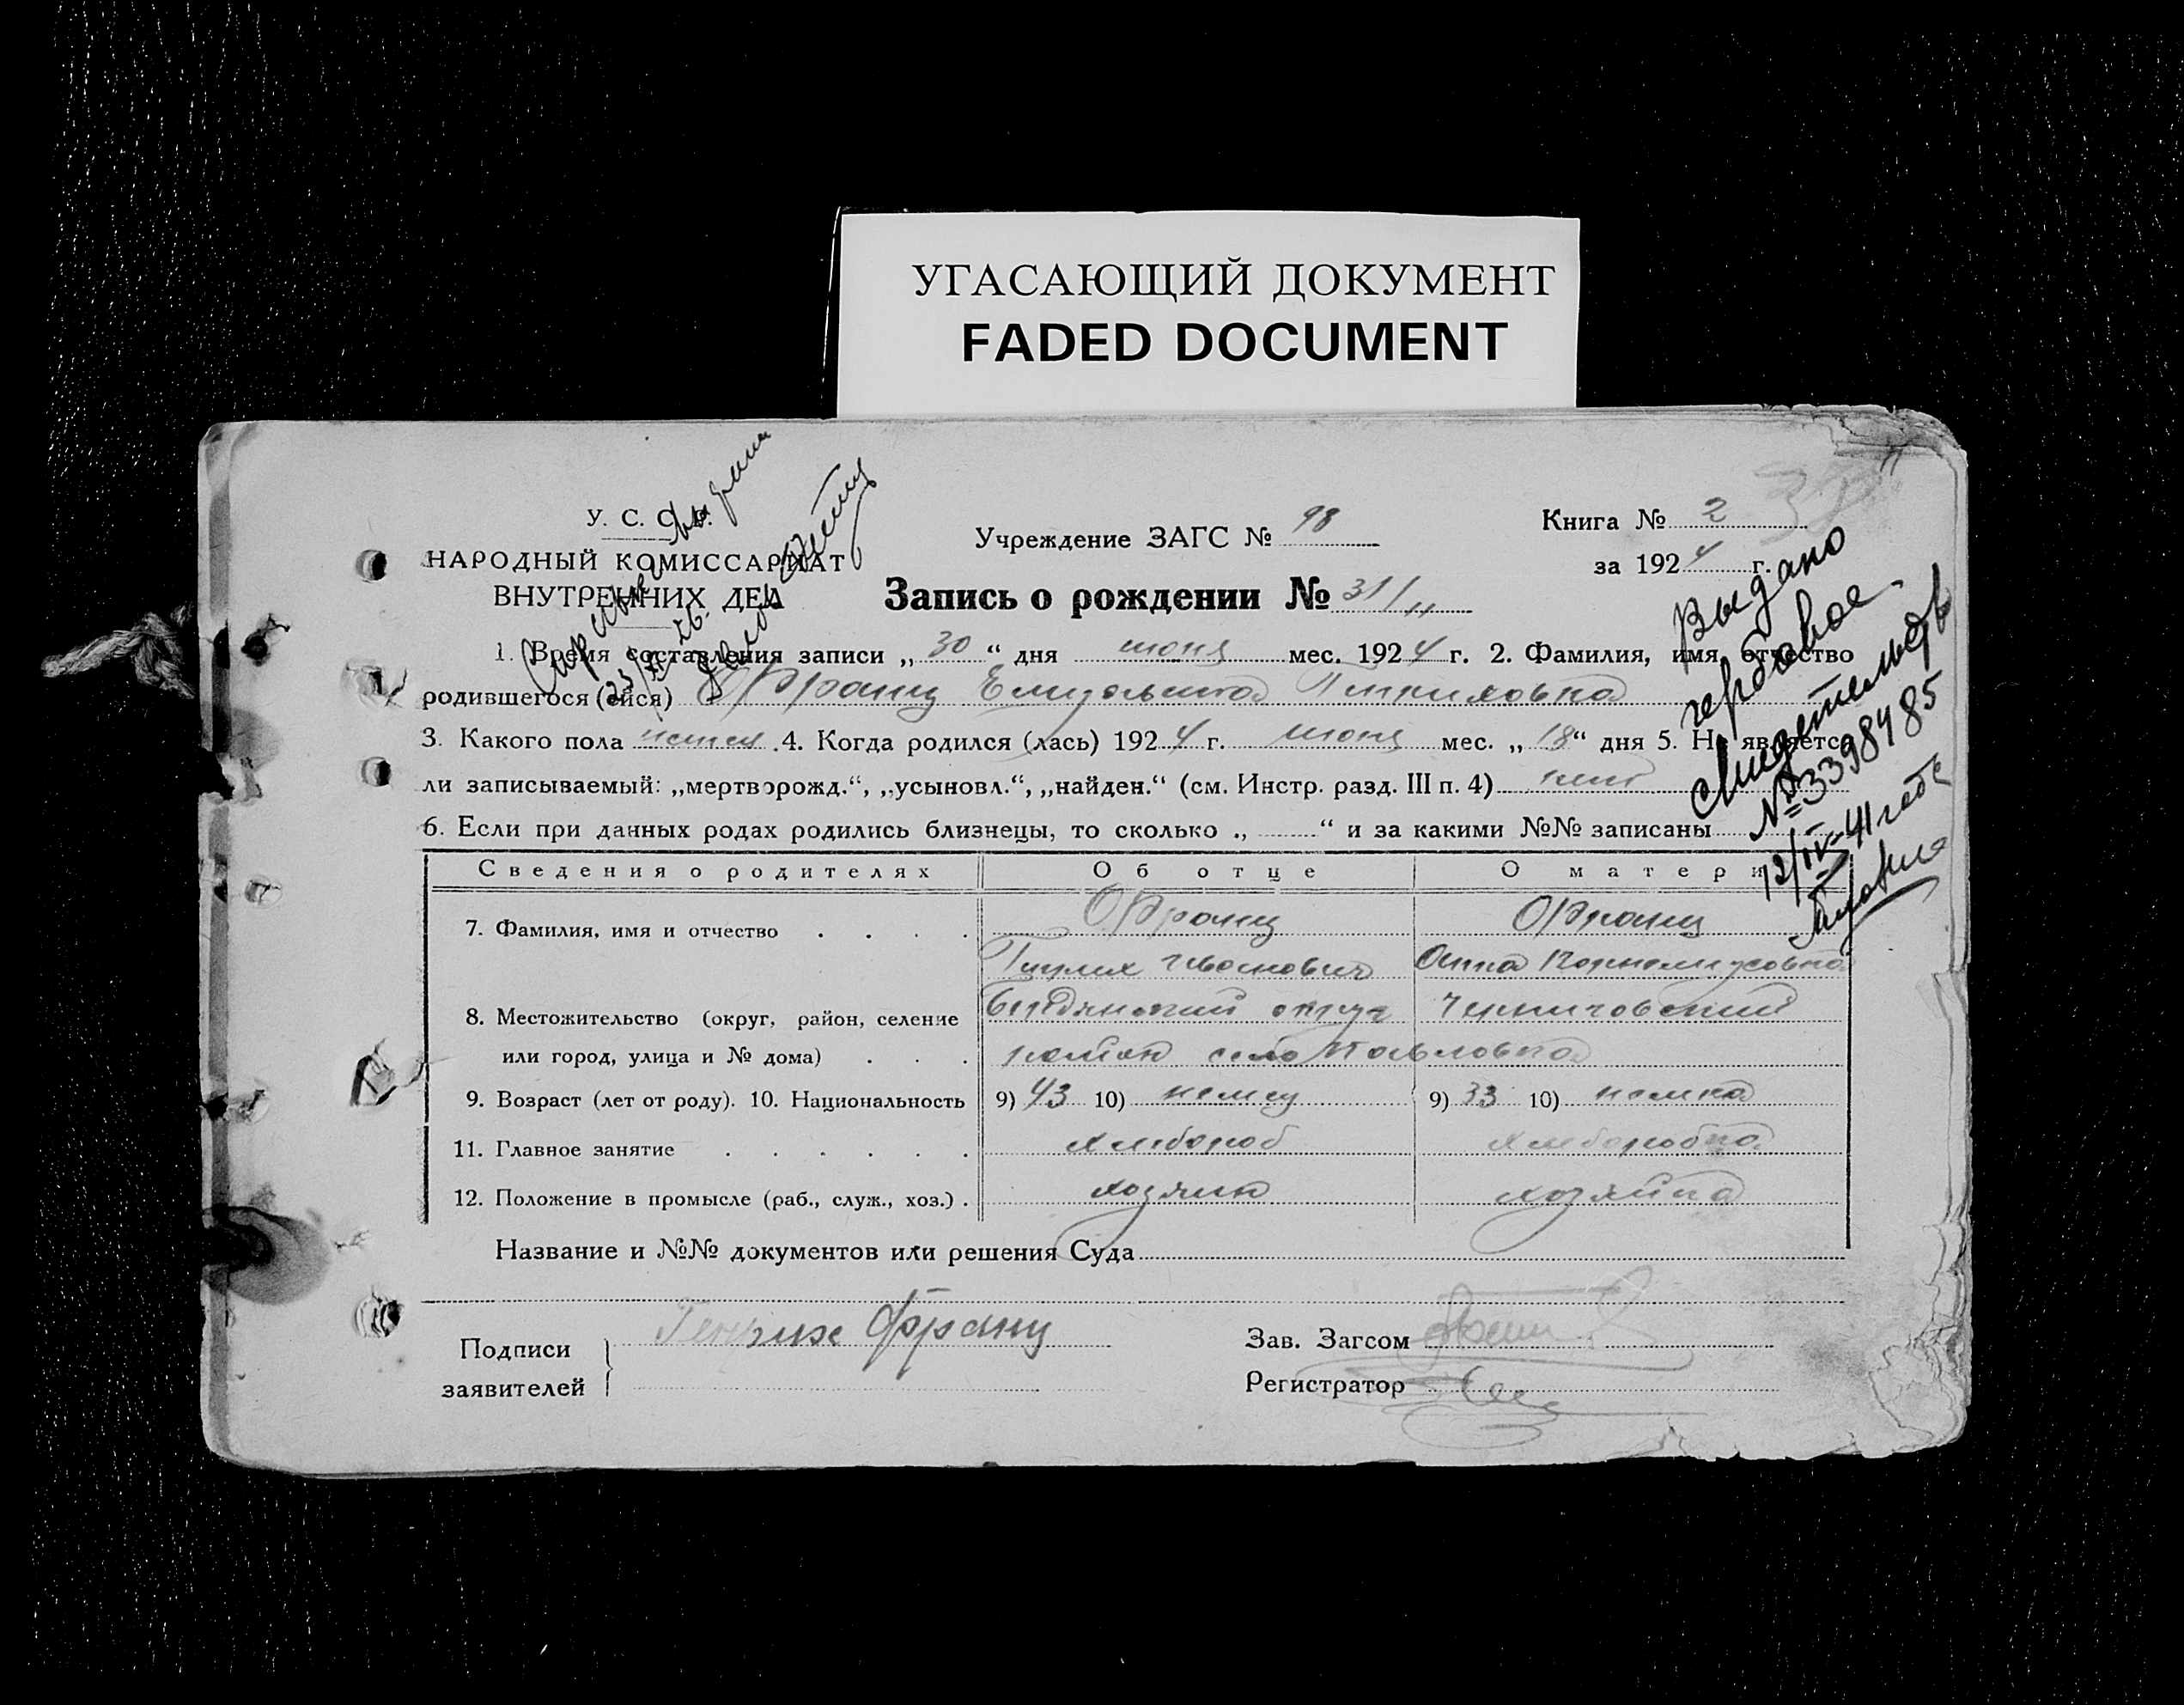 УГАСАЮЩИЙ ДОКУМЕНТ
FADED DOCUMENT
У. С. С. Р.
НАРОДНЫЙ КОМИССАРИАТ
ВНУТРЕННИХ ДЕЛ
Учреждение ЗАГС № 98
Книга № 2
за 1924 г.
Запись о рождении № 31/11
1. Время составления записи „30“ дня июня мес. 1924 г. 2. Фамилия, имя, отчество
родившегося (ейся) Франц Елизавета
3. Какого пола женск. 4. Когда родился (лась) 1924 г. июня мес. „18“ дня 5. Не является
ли записываемый: „мертворожд.“, „усыновл.“, „найден.“ (см. Инстр. разд. III п. 4) нет
6. Если при данных родах родились близнецы, то сколько „ “ и за какими №№ записаны
Выдано
гербовое
свидетельств
№ 3398485
12/IV-41 года
Сведения о родителях Об отце О матери
7. Фамилия, имя и отчество Франц Франц
Иванович Анна Корнелиусовна
8. Местожительство (округ, район, селение Бердянский округ Черниговский
или город, улица и № дома) район село Павловка
9. Возраст (лет от роду). 10. Национальность 9) 43 10) немец 9) 33 10) немка
11. Главное занятие хлебороб хлеборобка
12. Положение в промысле (раб., служ., хоз.) хозяин хозяйка
Название и №№ документов или решения Суда
Подписи
заявителей
Генрих Франц
Зав. Загсом
Регистратор